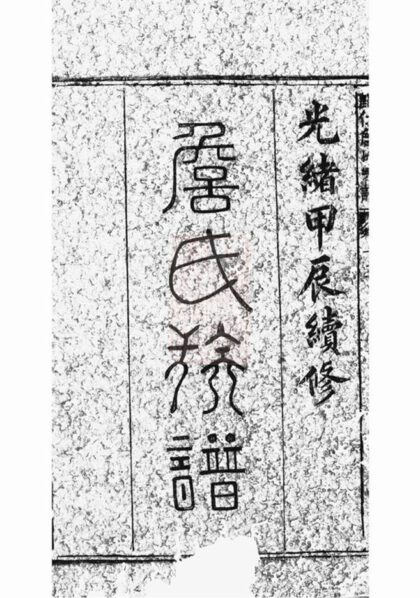 光緒甲辰續修
詹氏族譜